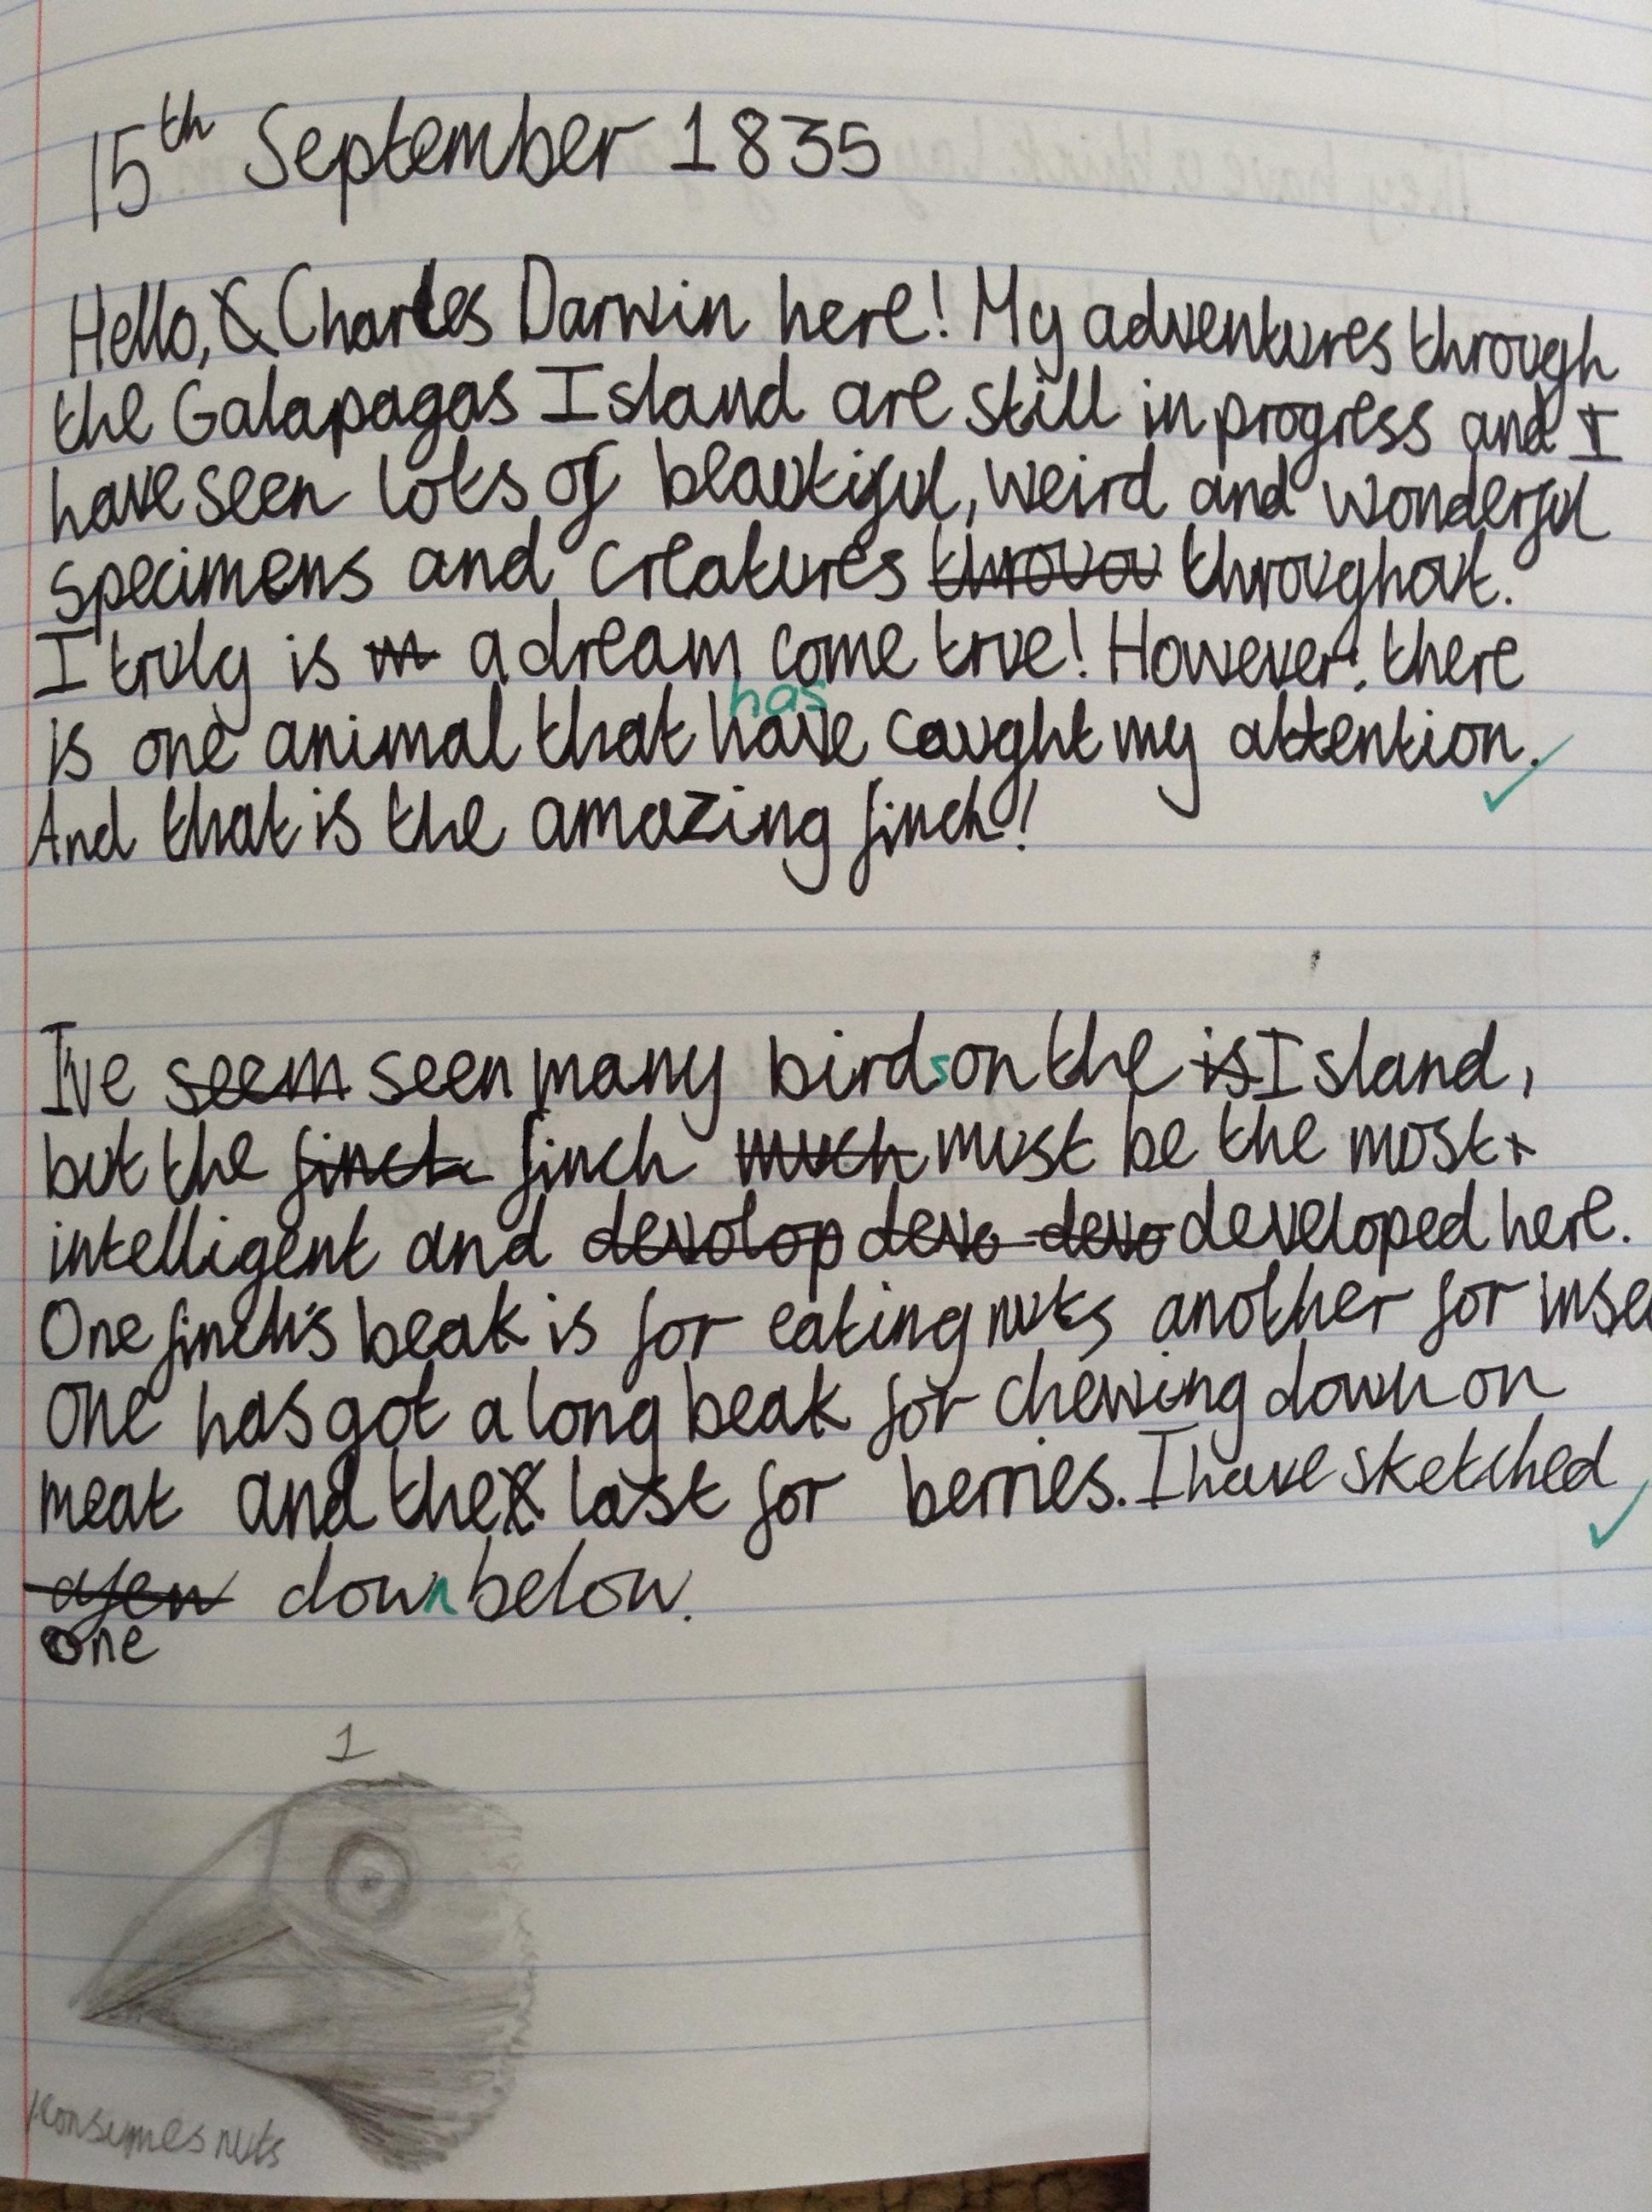 15th September 1835
Hello, Charles Darwin here! My adventures through
the Galapagas Island are still in progress and I
have seen lots of beautiful, weird and wonderful
specimens and creatures throughout.
I truly is a dream come true! However, there
has
is one animal that have caught my attention.
And that is the amazing finch!
I've seem seen many birds on the is Island,
but the finch finch much must be the most
intelligent and devolop devo devo developed here.
One finch's beak is for eating nuts another for inse
one has got a long beak for chewing down on
meat and the last for berries. I have sketched
down below.
one
1
consumes nuts